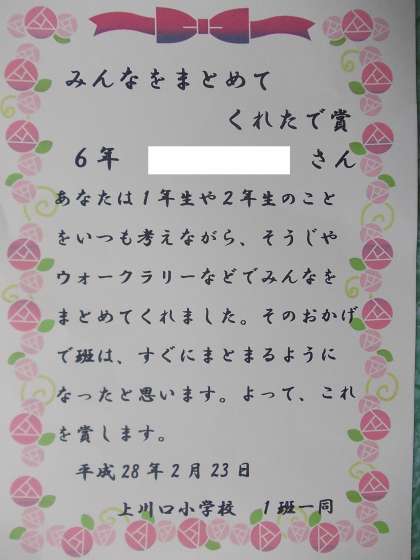 みんなをまとめて
くれたで賞
6年 さん
あなたは1年生や2年生のこと
をいつも考えながら、そうじや
ウォークラリーなどでみんなを
まとめてくれました。そのおかげ
で班は、すぐにまとまるように
なったと思います。よって、これ
を賞します。
平成28年2月23日
上川口小学校 1班一同